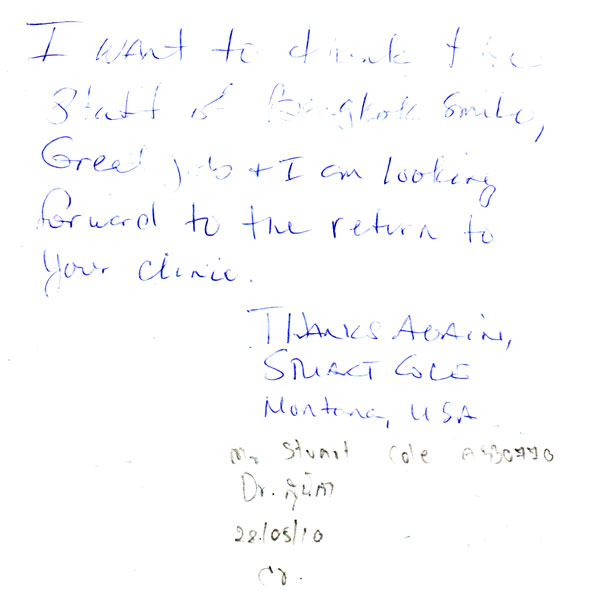 I want to thank the
staff of Bangkok Smile,
Great job + I am looking
forward to the return to
your clinic.
THANKS AGAIN,
STUART COLE
Montana, USA
Mr Stuart Cole
Dr.
28/05/10